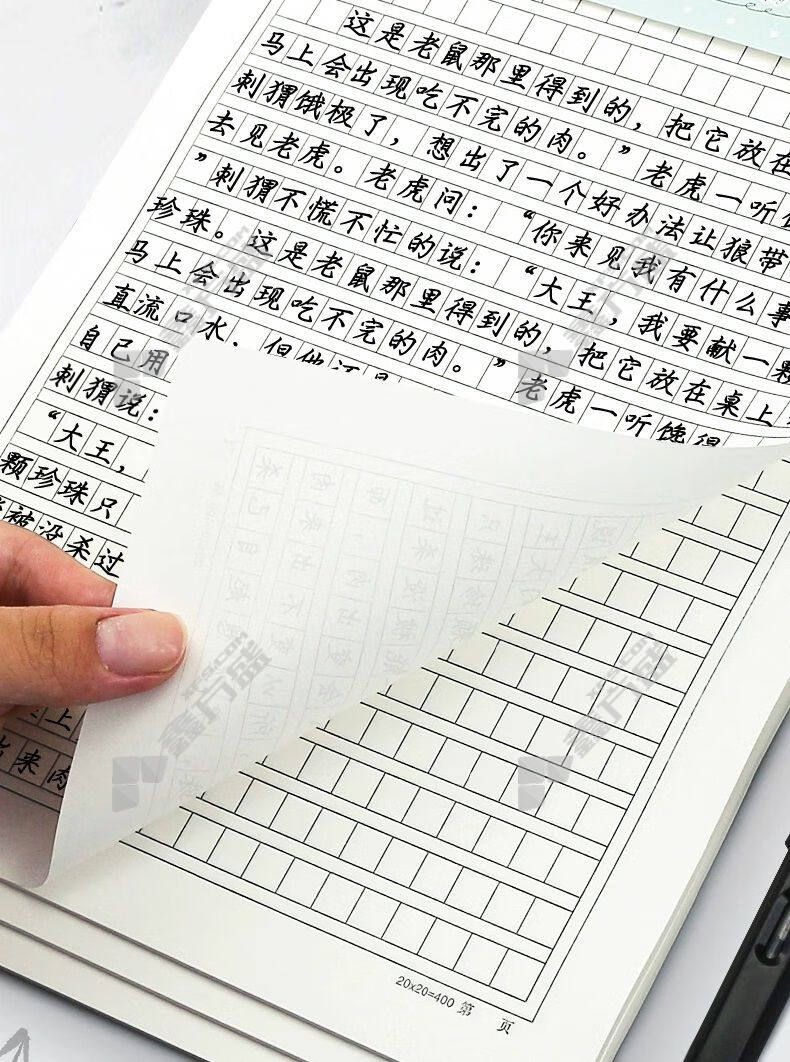 这是老鼠那里得到的，把它放在
马上会出现吃不完的肉。”老虎一听馋
刺猬饿极了，想出了一个好办法让狼带
去见老虎。老虎问：“你来见我有什么事
”刺猬不慌不忙的说：“大王，我要献一颗
珍珠。这是老鼠那里得到的，把它放在桌上
马上会出现吃不完的肉。”老虎一听馋得
直流口水，但他还是
自己用
刺猬说：
“大王，
颗珍珠只
被没杀过
上
来肉
20x20=400 第 页
鑫方盛
鑫方盛
鑫方盛
鑫方盛